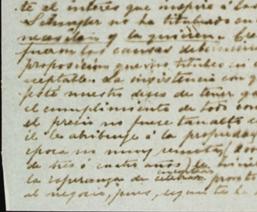 te al interés que inspiró á las
Schuyler no ha titubeado en
necesitan y la quieren. Cre
fueron las causas de
proposicion que no titubeo en
ceptable. La insistencia con q
festé nuestro deseo de tener ga
el cumplimiento de todo con
el precio no fuese tan alto c
él le atribuye á la propiedad
epoca no muy remota (
de tres ó cuatro años)
la esperanza de encontrar pronto
al negocio, pues, segun te